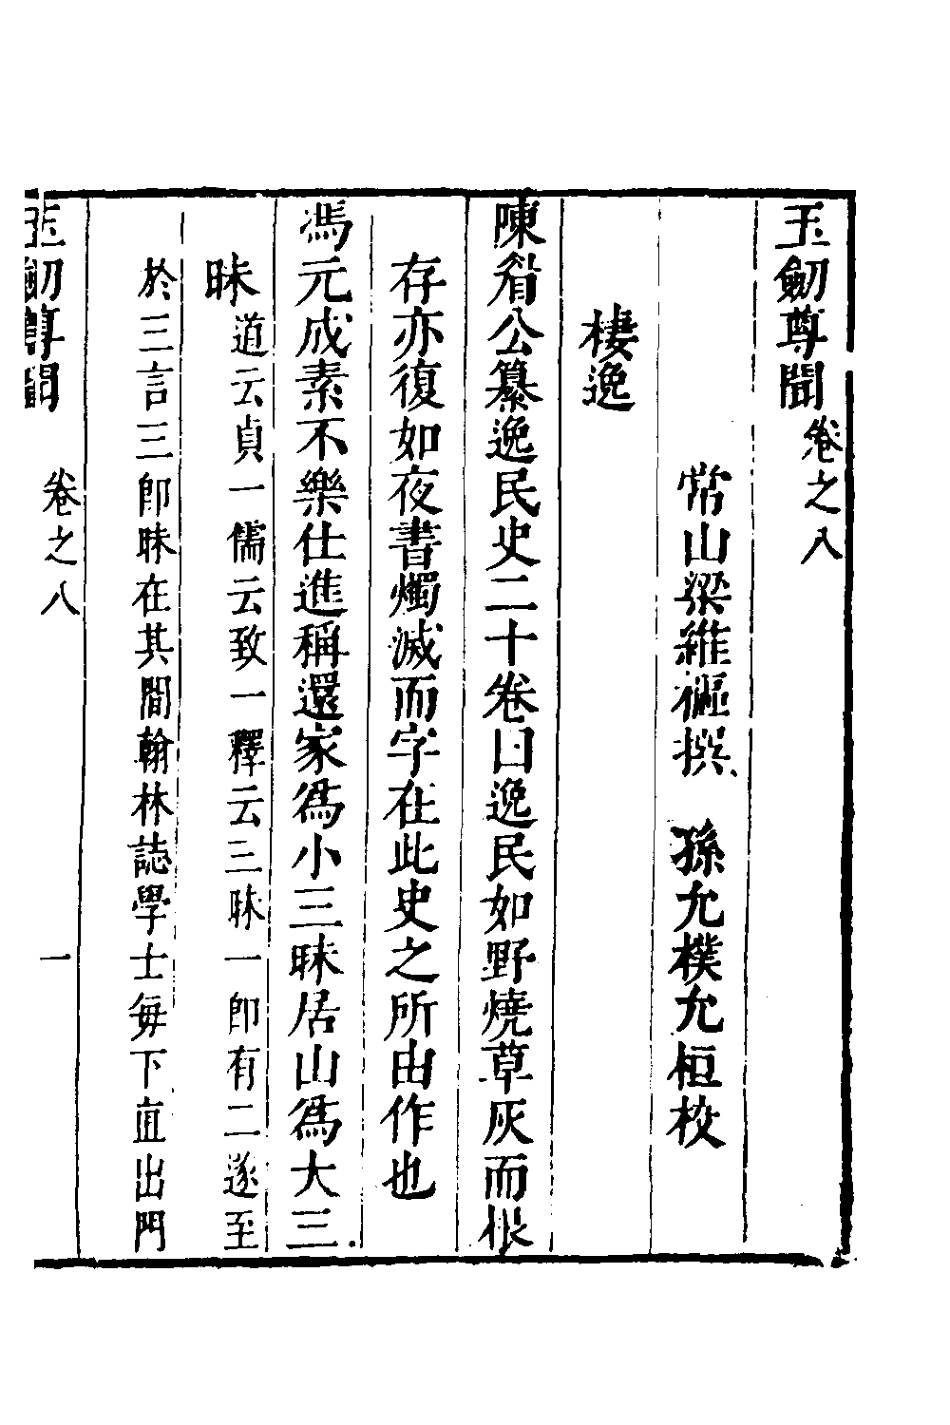 玉劒尊聞卷之八
常山梁維樞撰 孫允樸允桓校
棲逸
陳眉公纂逸民史二十卷曰逸民如野燒草灰而根
存亦復如夜書燭滅而字在此史之所由作也
馮元成素不樂仕進稱還家爲小三昧居山爲大三
昧道云貞一儒云致一釋云三昧一卽有二遂至
於三言三卽昧在其間翰林誌學士每下直出門
玉劒尊聞 卷之八 一